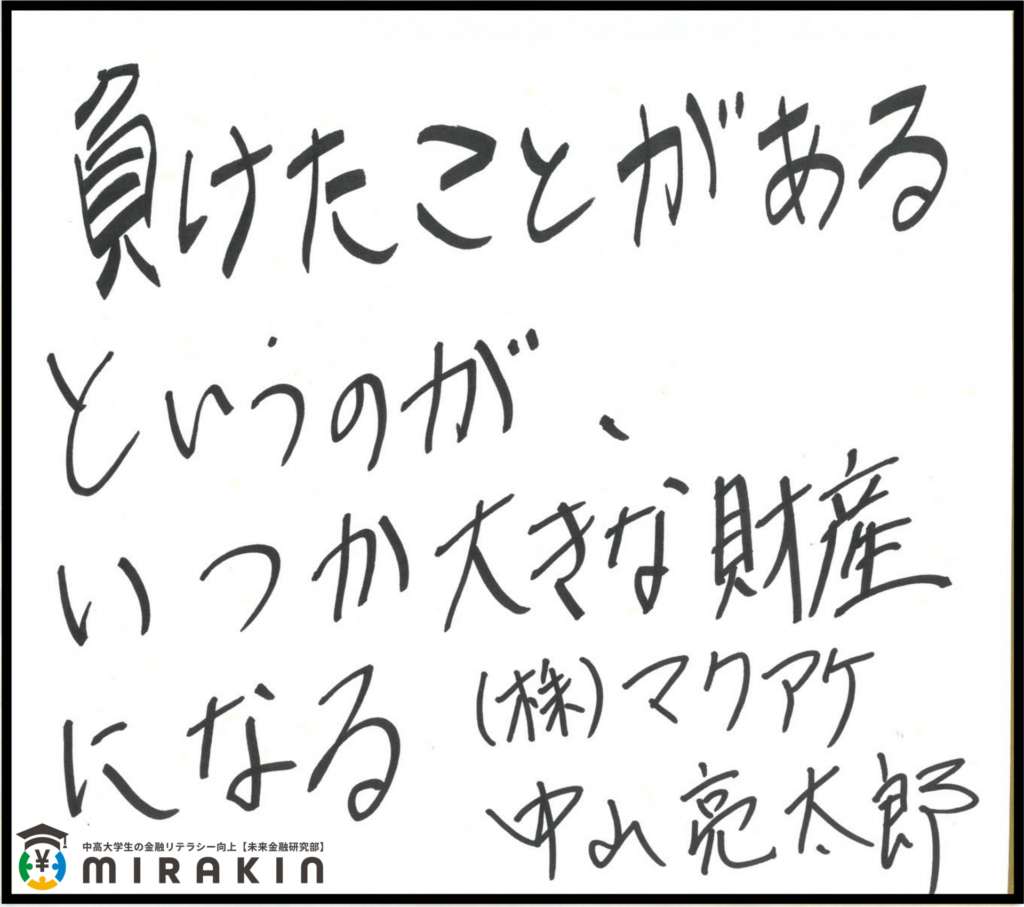 負けたことがある
というのが、
いつか大きな財産
になる
(株)マクアケ
中山亮太郎
中高大学生の金融リテラシー向上【未来金融研究部】
MIRAKIN